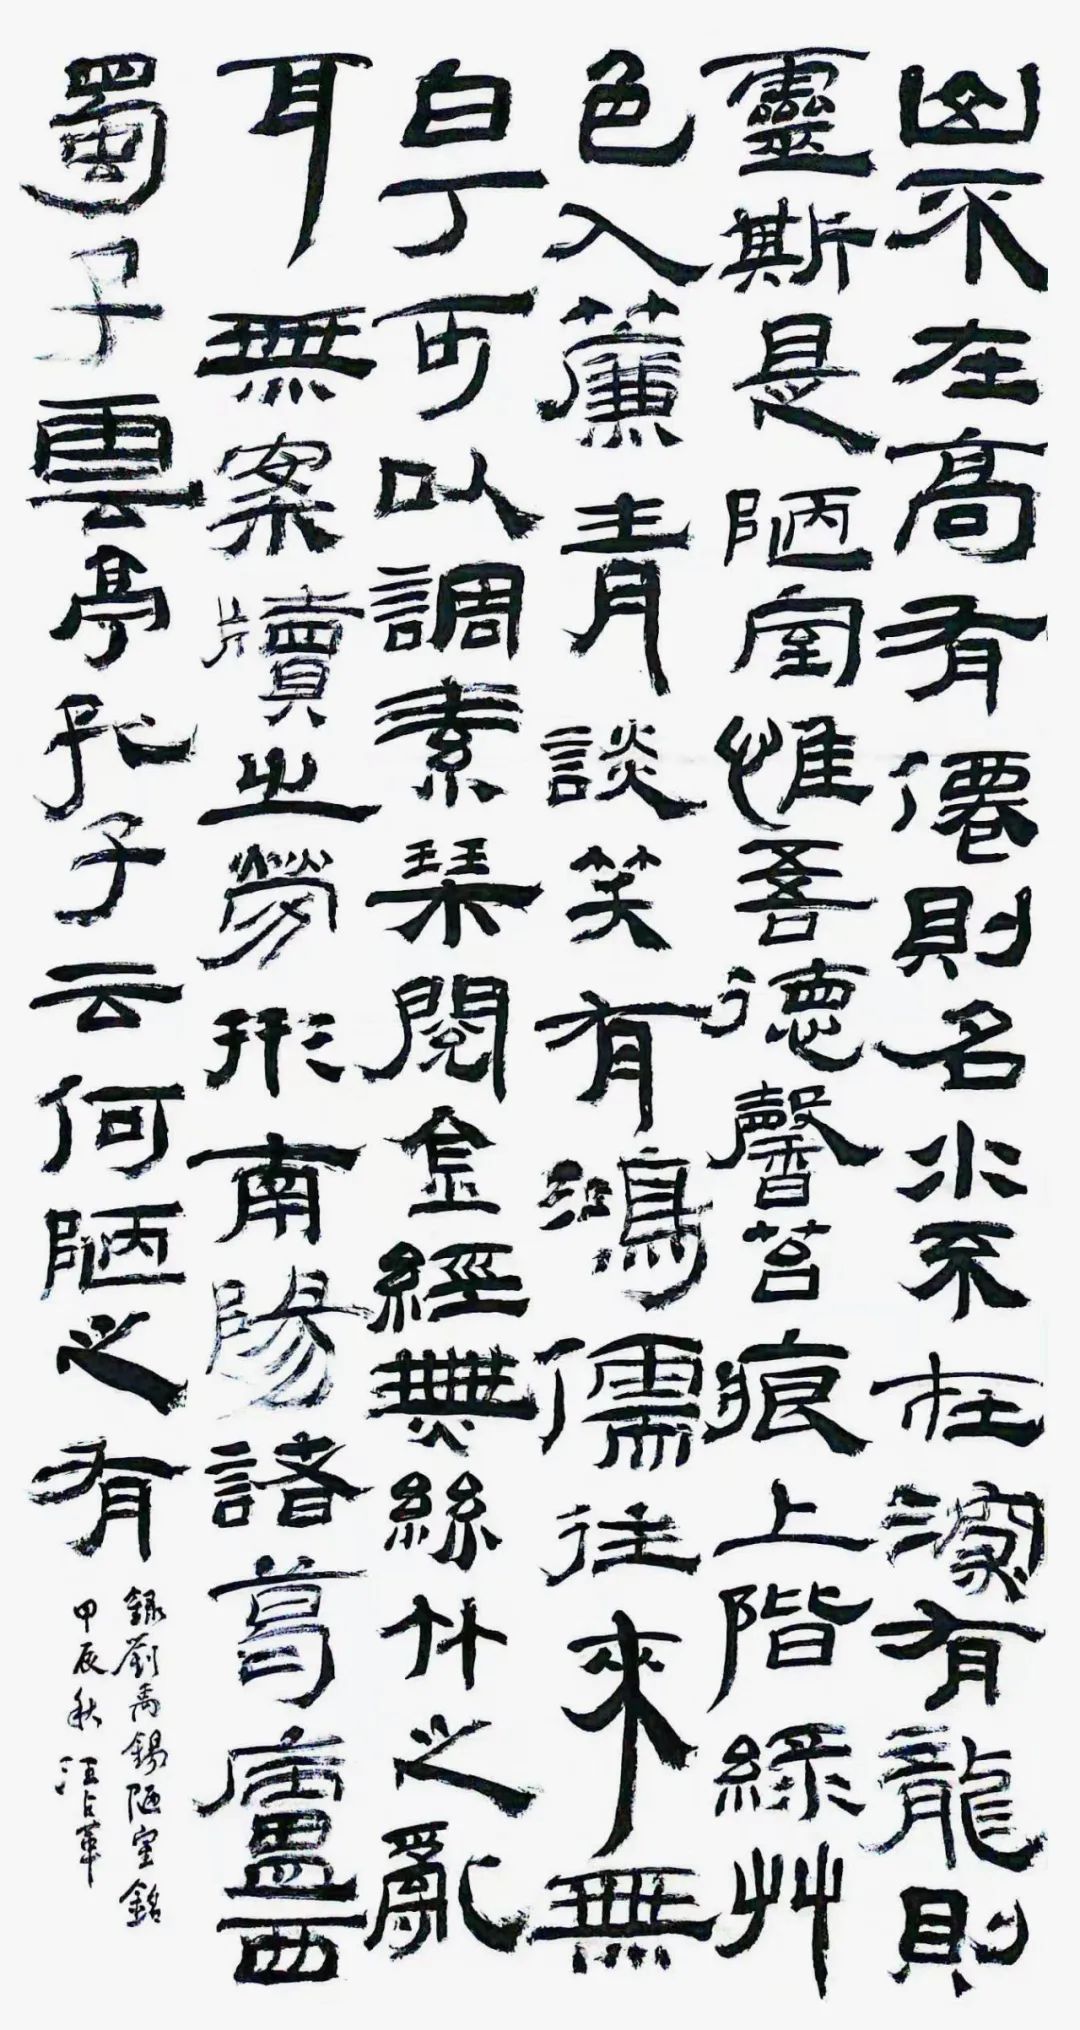 山不在高有僊則名水不在深有龍則
靈斯是陋室惟吾德馨苔痕上階綠艸
色入簾青談笑有鴻儒往來無
白丁可以調素琴閱金經無絲竹之亂
耳無案牘之勞形南陽諸葛廬西
蜀子雲亭孔子云何陋之有
錄劉禹錫陋室銘
甲辰秋汪占革